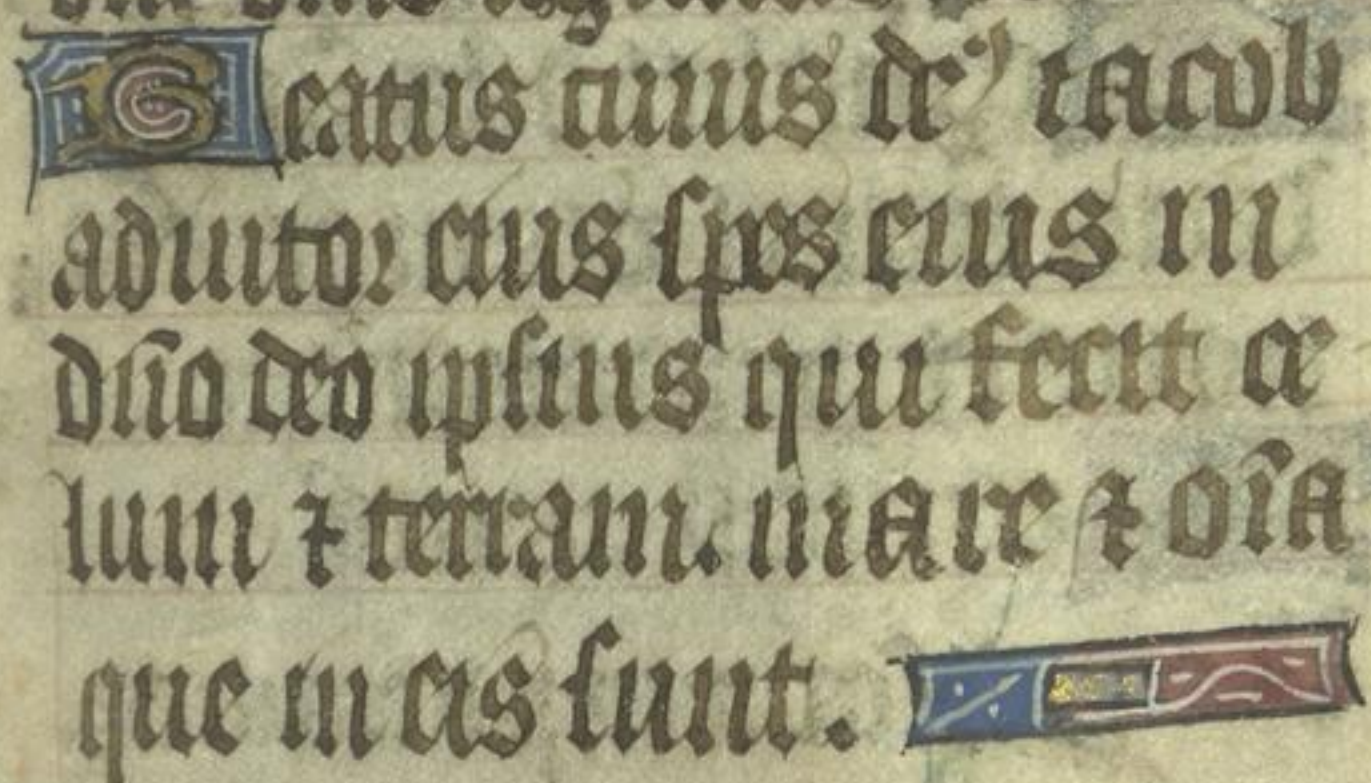 Beatus cuius de⁹ iacob
adiutor eius spes eius in
dño deo ipsius qui fecit ce
lum ⁊ terram. mare ⁊ oı̃a
que in eis sunt.